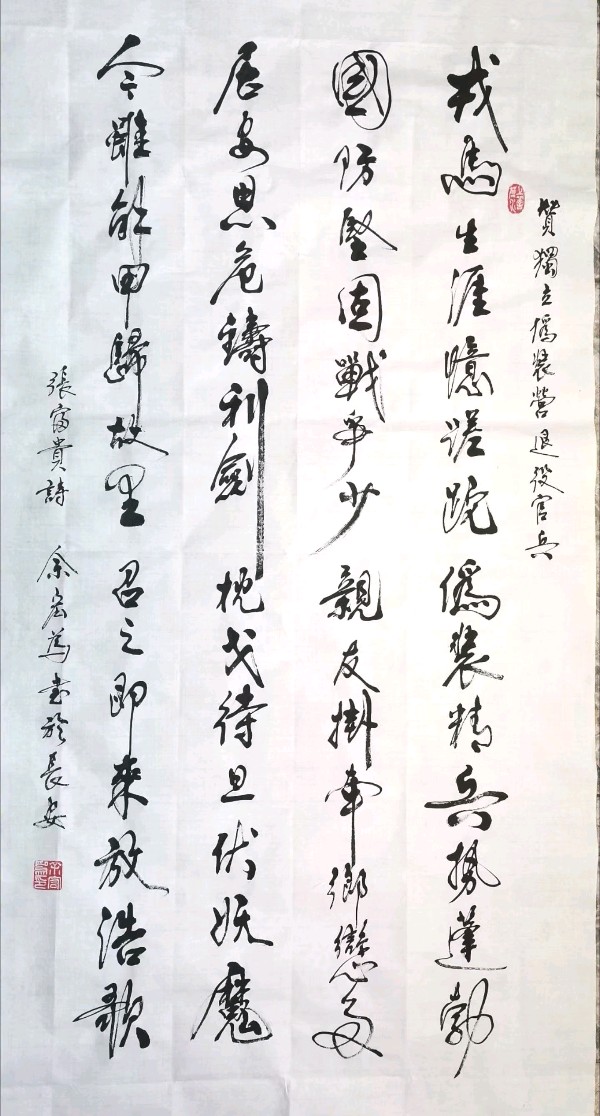 贊獨立僞裝營退役官兵
戎馬生涯憶蹉跎僞裝精兵勢蓬勃
國防堅固戰爭少親友掛牽鄉戀多
居安思危鑄利劍枕戈待旦伏妖魔
今雖卸甲歸故里召之即來放浩歌
張富貴詩 余宏爲書於長安